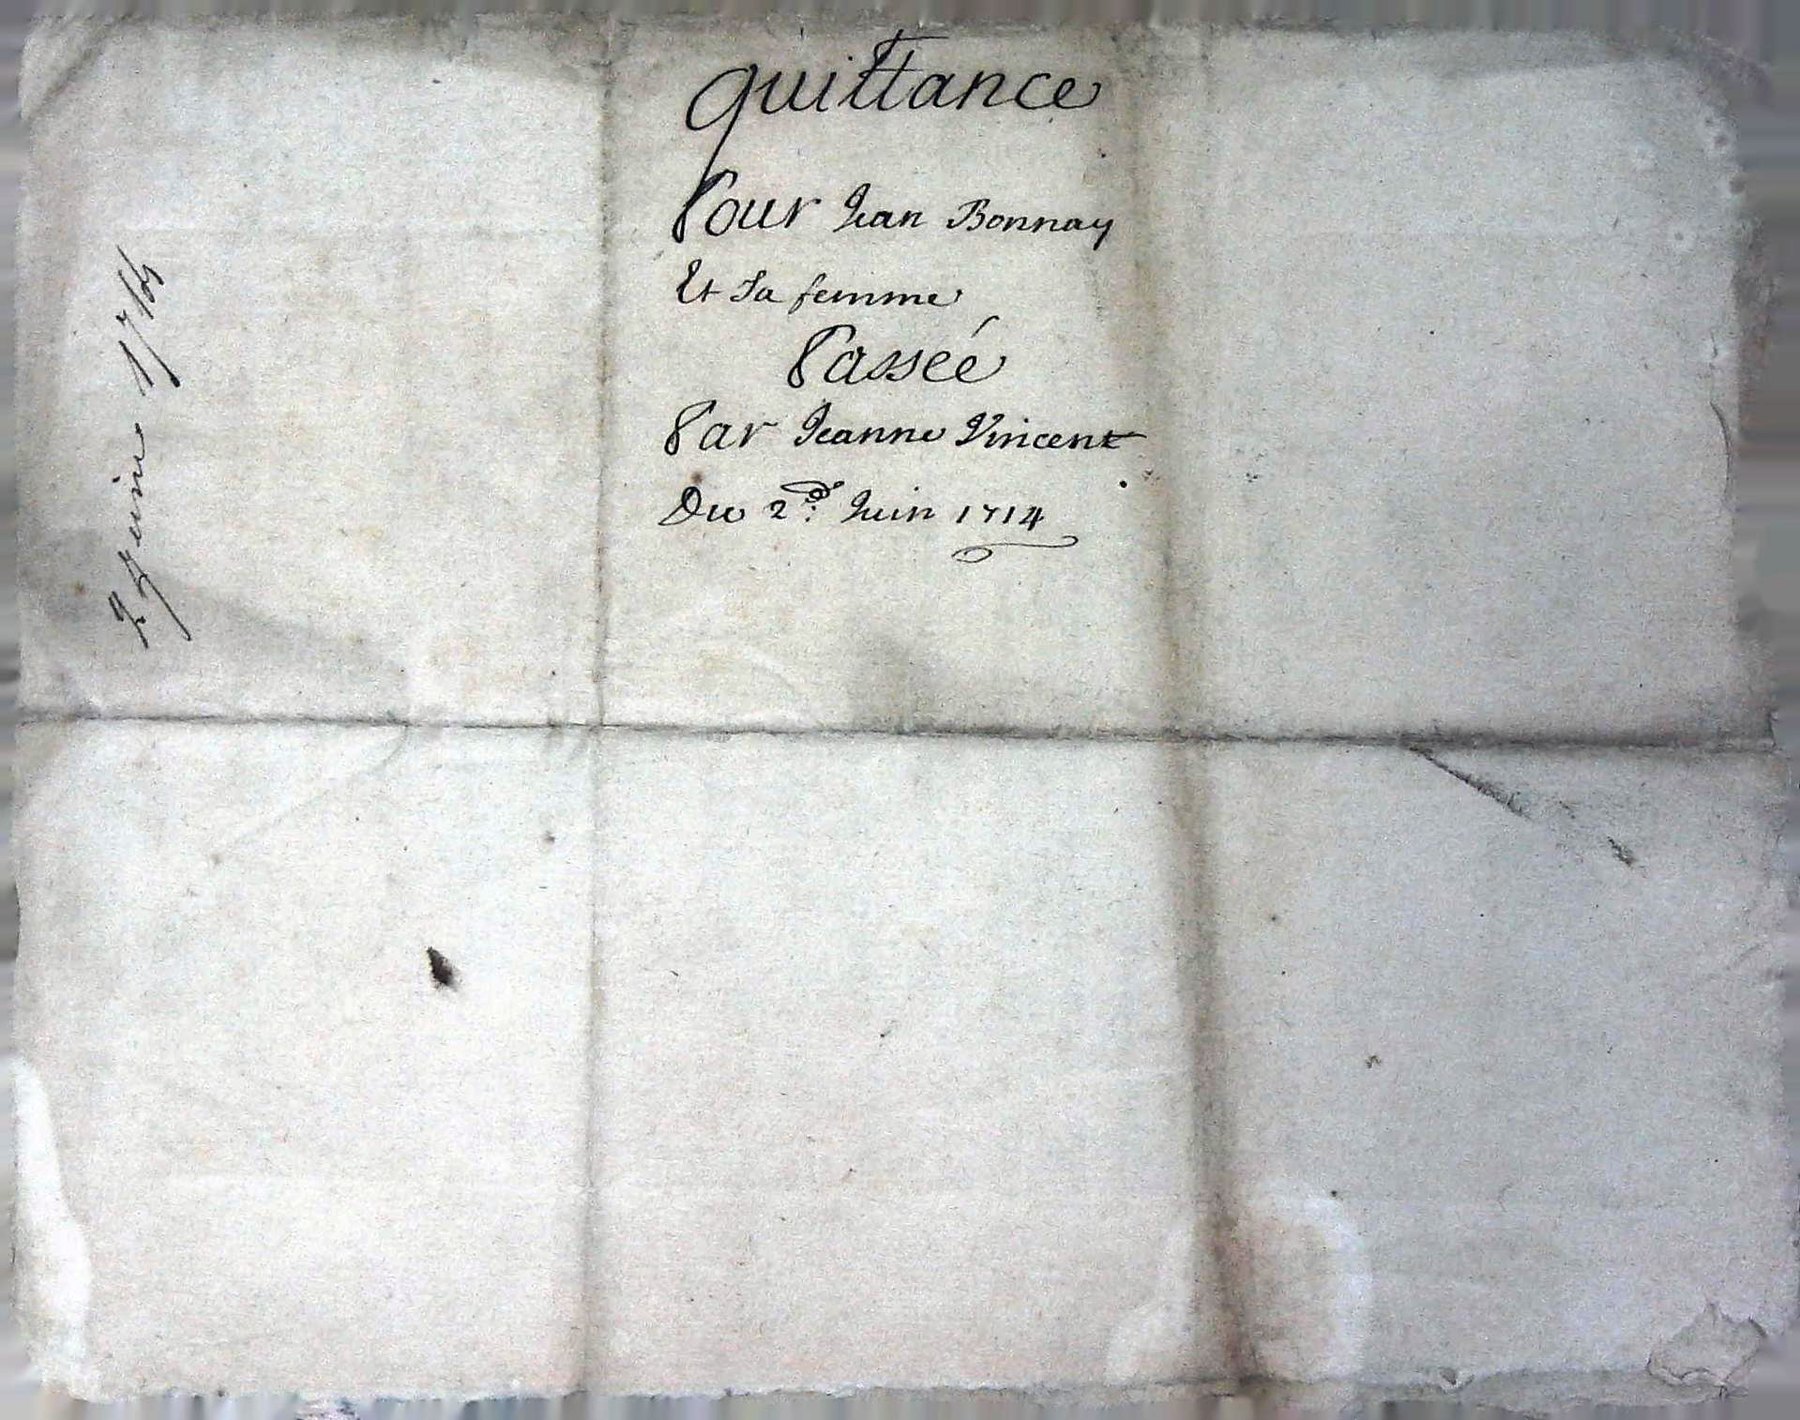 quittance
Pour Jean Bonnay
Et Sa femme
Passeé
Par Jeanne Vincent
Du 2d. Juin 1714
2 juin 1714